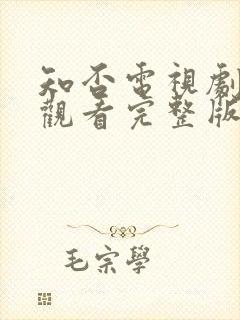 知否電視劇
觀看完整版
毛宗學